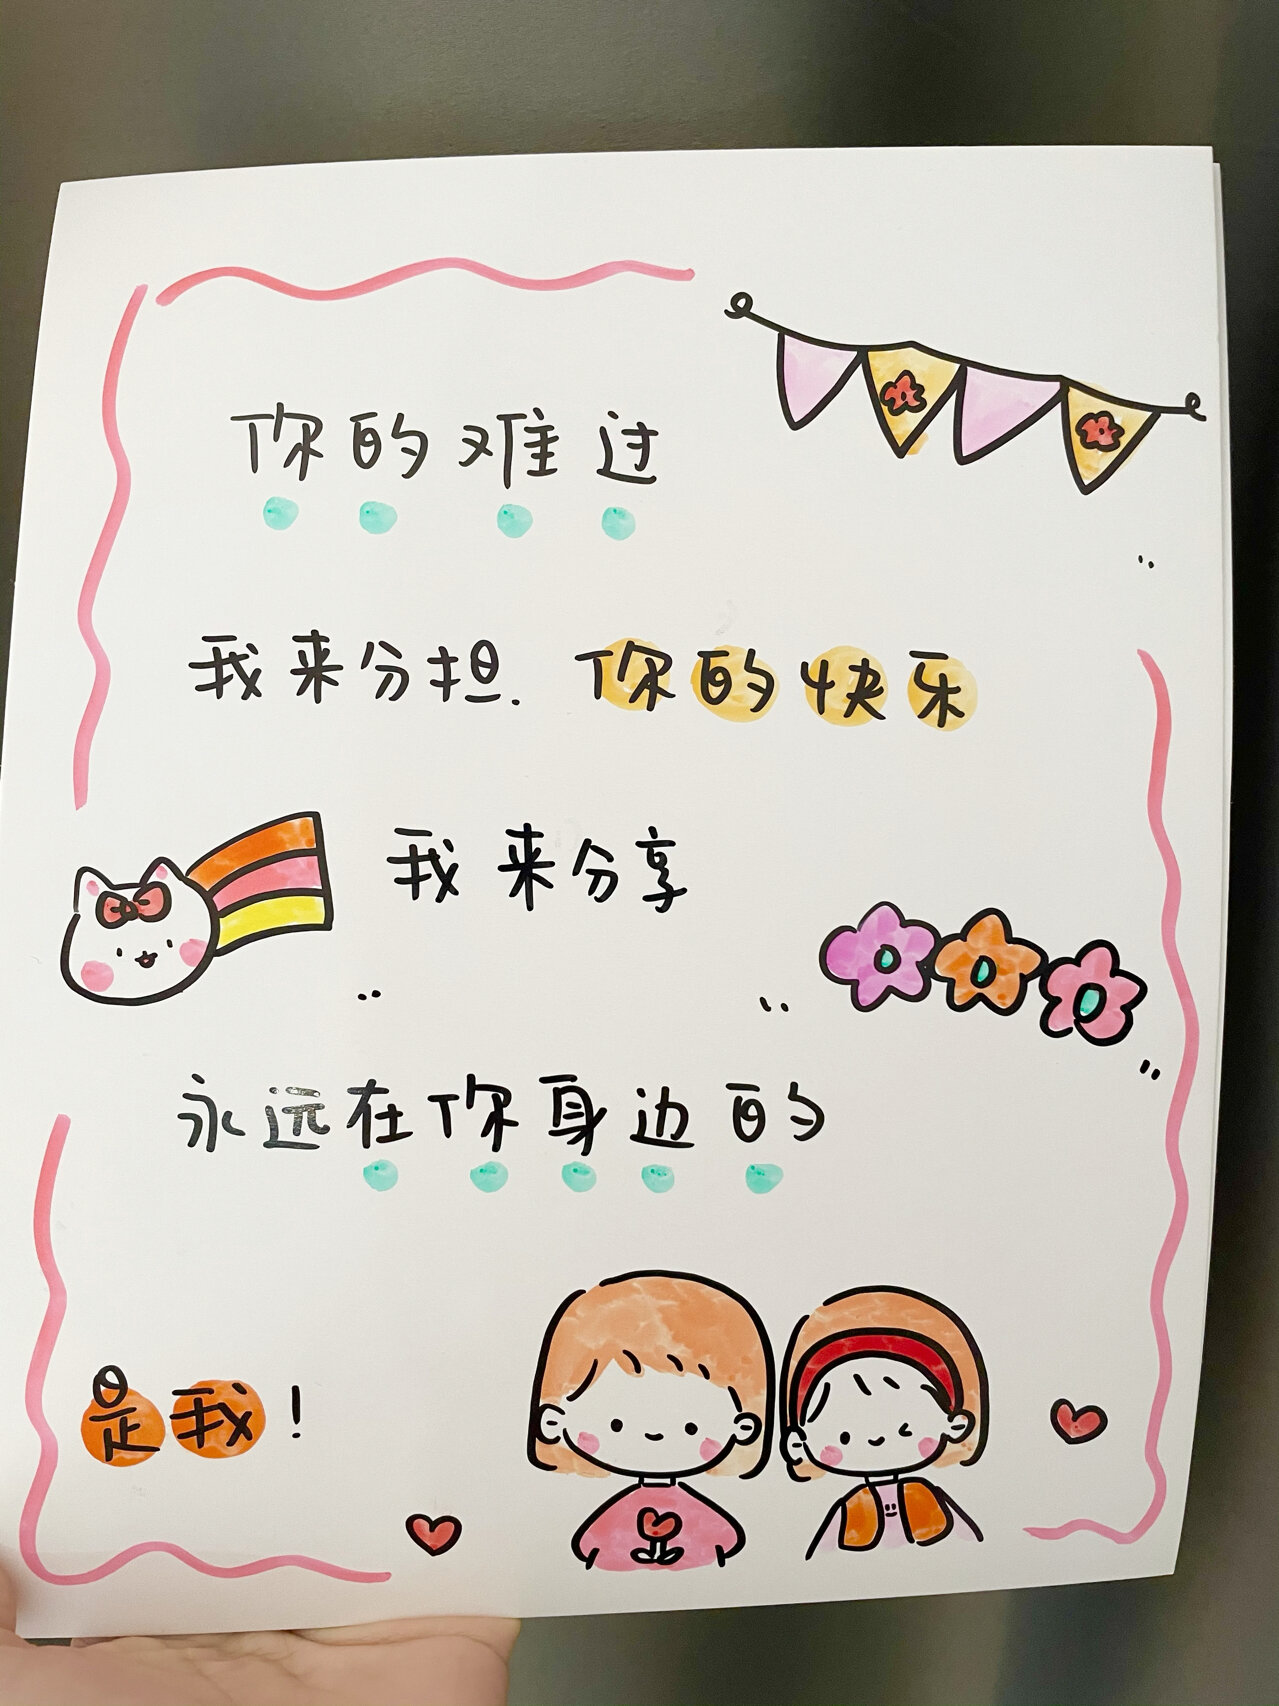 你的难过
我来分担.你的快乐
我来分享
永远在你身边的
是我!